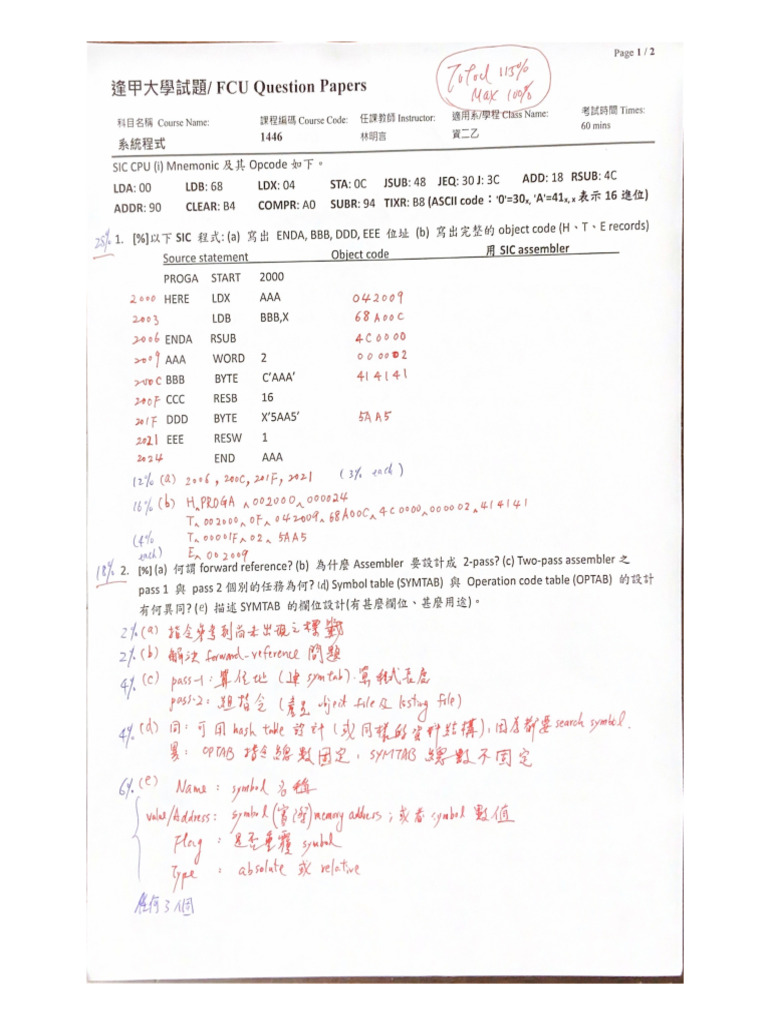 Page 1 / 2
Total 115%
Max 100%
逢甲大學試題/ FCU Question Papers
科目名稱 Course Name: 課程編碼 Course Code: 任課教師 Instructor: 適用系/學程 Class Name: 考試時間 Times:
系統程式 1446 林明言 資二乙 60 mins
SIC CPU (i) Mnemonic 及其 Opcode 如下。
LDA: 00 LDB: 68 LDX: 04 STA: 0C JSUB: 48 JEQ: 30 J: 3C ADD: 18 RSUB: 4C
ADDR: 90 CLEAR: B4 COMPR: A0 SUBR: 94 TIXR: B8 (ASCII code：'0'=30x, 'A'=41x, x 表示 16 進位)
25% 1. [%]以下 SIC 程式: (a) 寫出 ENDA, BBB, DDD, EEE 位址 (b) 寫出完整的 object code (H、T、E records)
Source statement Object code 用 SIC assembler
PROGA START 2000
2000 HERE LDX AAA 042009
2003 LDB BBB,X 68A00C
2006 ENDA RSUB 4C0000
2009 AAA WORD 2 000002
200C BBB BYTE C'AAA' 414141
200F CCC RESB 16
201F DDD BYTE X'5AA5' 5AA5
2021 EEE RESW 1
2024 END AAA
12% (a) 2006, 200C, 201F, 2021 (3% each)
16% (b) H^PROGA ^002000^000024
T^002000^0F^042009^68A00C^4C0000^000002^414141
(4% each) T^00001F^02^5AA5
E^002009
18% 2. [%] (a) 何謂 forward reference? (b) 為什麼 Assembler 要設計成 2-pass? (c) Two-pass assembler 之
pass 1 與 pass 2 個別的任務為何? (d) Symbol table (SYMTAB) 與 Operation code table (OPTAB) 的設計
有何異同? (e) 描述 SYMTAB 的欄位設計(有甚麼欄位、甚麼用途)。
2% (a) 指令參考到尚未出現之標籤
2% (b) 解決 forward-reference 問題
4% (c) pass-1：算位址 (建 symtab). 算程式長度
pass-2：組指令 (產生 object file 及 listing file)
4% (d) 同：可用 hash table 設計 (或同樣的資料結構), 因為都要 search symbol.
異：OPTAB 指令總數固定，SYMTAB 總數不固定
6% (e) Name：symbol 名稱
value/Address：symbol memory address；或者 symbol 數值
Flag：是否重覆 symbol
Type：absolute 或 relative
任何 3 個